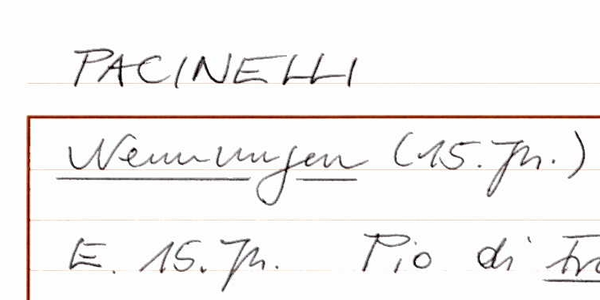 PACINELLI
Nennungen (15. Jh.)
E. 15. Jh. Pio di